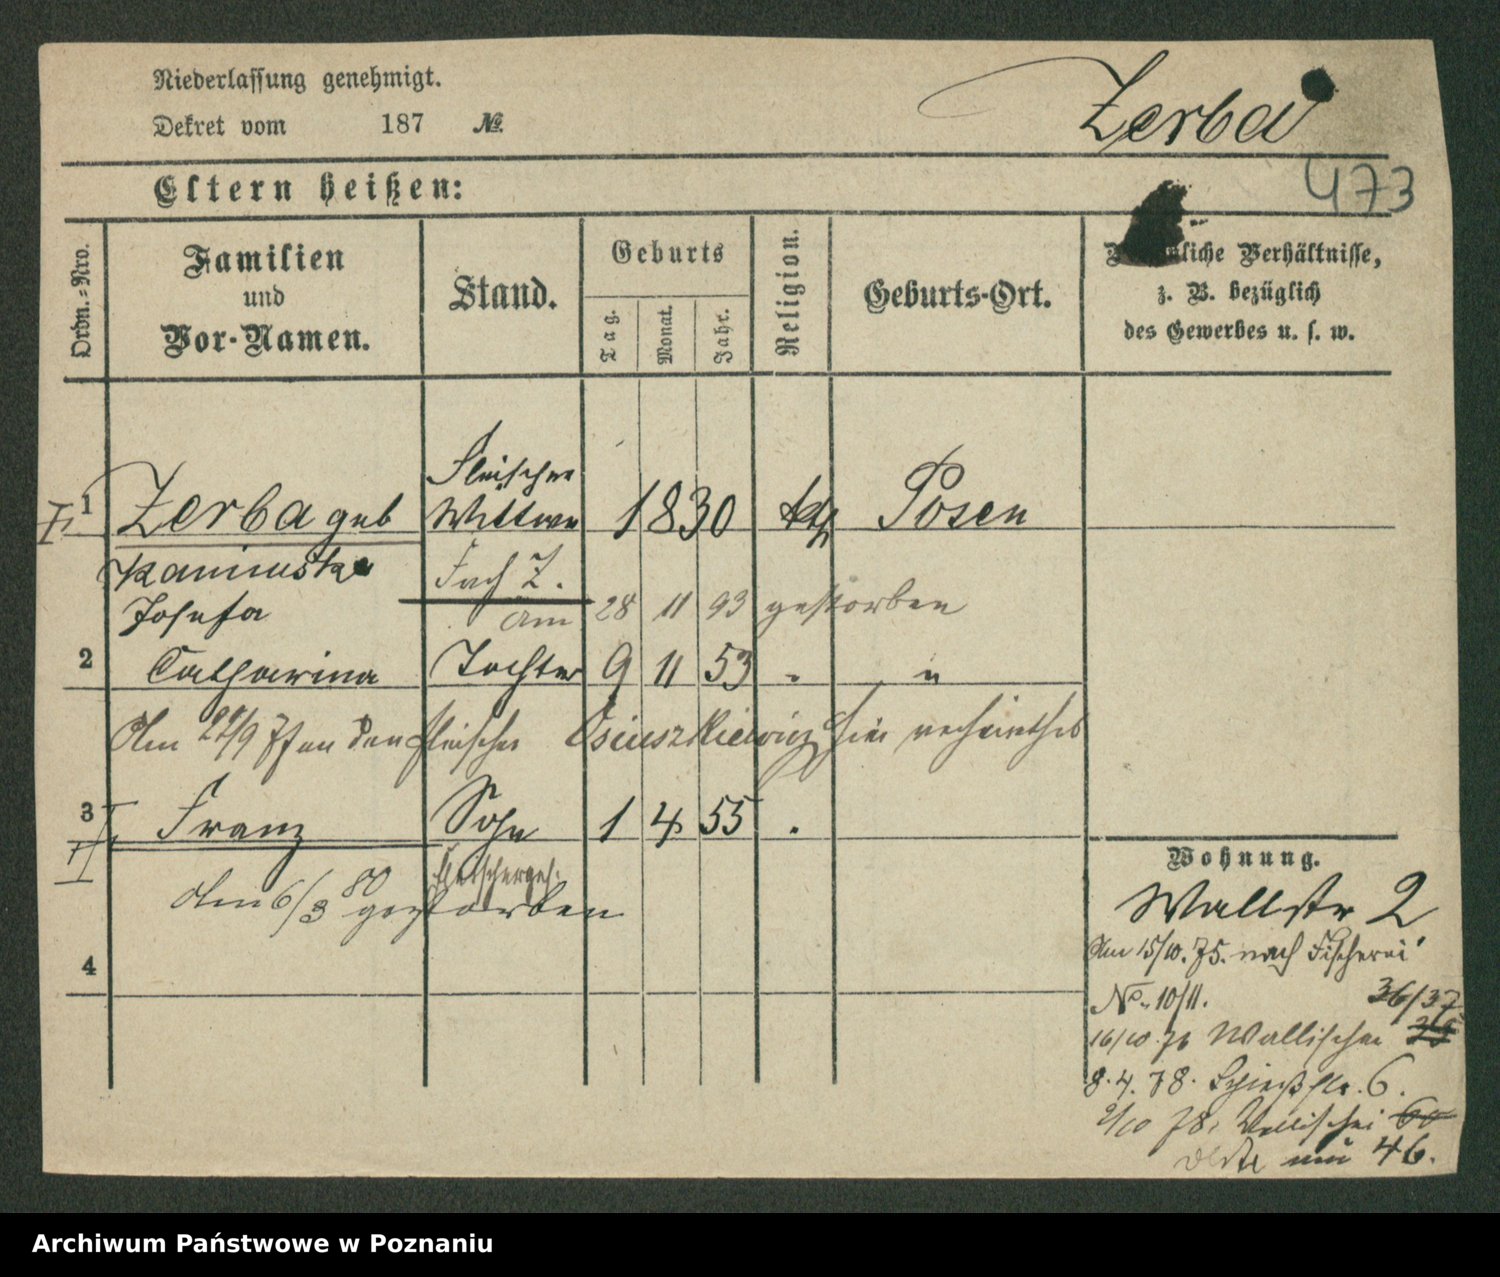 Niederlassung genehmigt.
Dekret vom 187 №
Zerba
473
Eltern heißen:
Ordn.-Nro.
Familien
und
Vor-Namen.
Stand.
Geburts
Tag.
Monat.
Jahr.
Religion.
Geburts-Ort.
Verhältnisse,
z. B. bezüglich
des Gewerbes u. s. w.
Fleischer
1 Zerba geb Wittwe 1830 kth Posen
Kaminska Fach Z.
Josefa am 28 11 93 gestorben
2 Catharina Tochter 9 11 53 " "
Am 9/ an den Fleischer hier
3 Franz Sohn 1 4 55 "
Fleischerges.
Am 6/3 80 gestorben
4
Wohnung.
Wallstr 2
Am 15/10. 75. nach Fischerei
No. 10/11. 36/37
16/10 76 Wallischei
8. 4. 78. Schießstr. 6.
2/10 78. Wallischei 60
46.
Archiwum Państwowe w Poznaniu